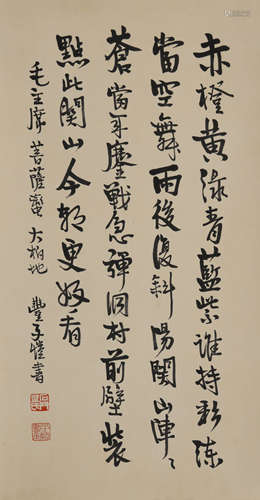 赤橙黃淥青藍紫誰持彩練
當空舞雨後復斜陽關山陣々
蒼當年鏖戰急彈洞村前壁裝
點此關山今朝更好看
毛主席菩薩蠻大柏地 豐子愷書